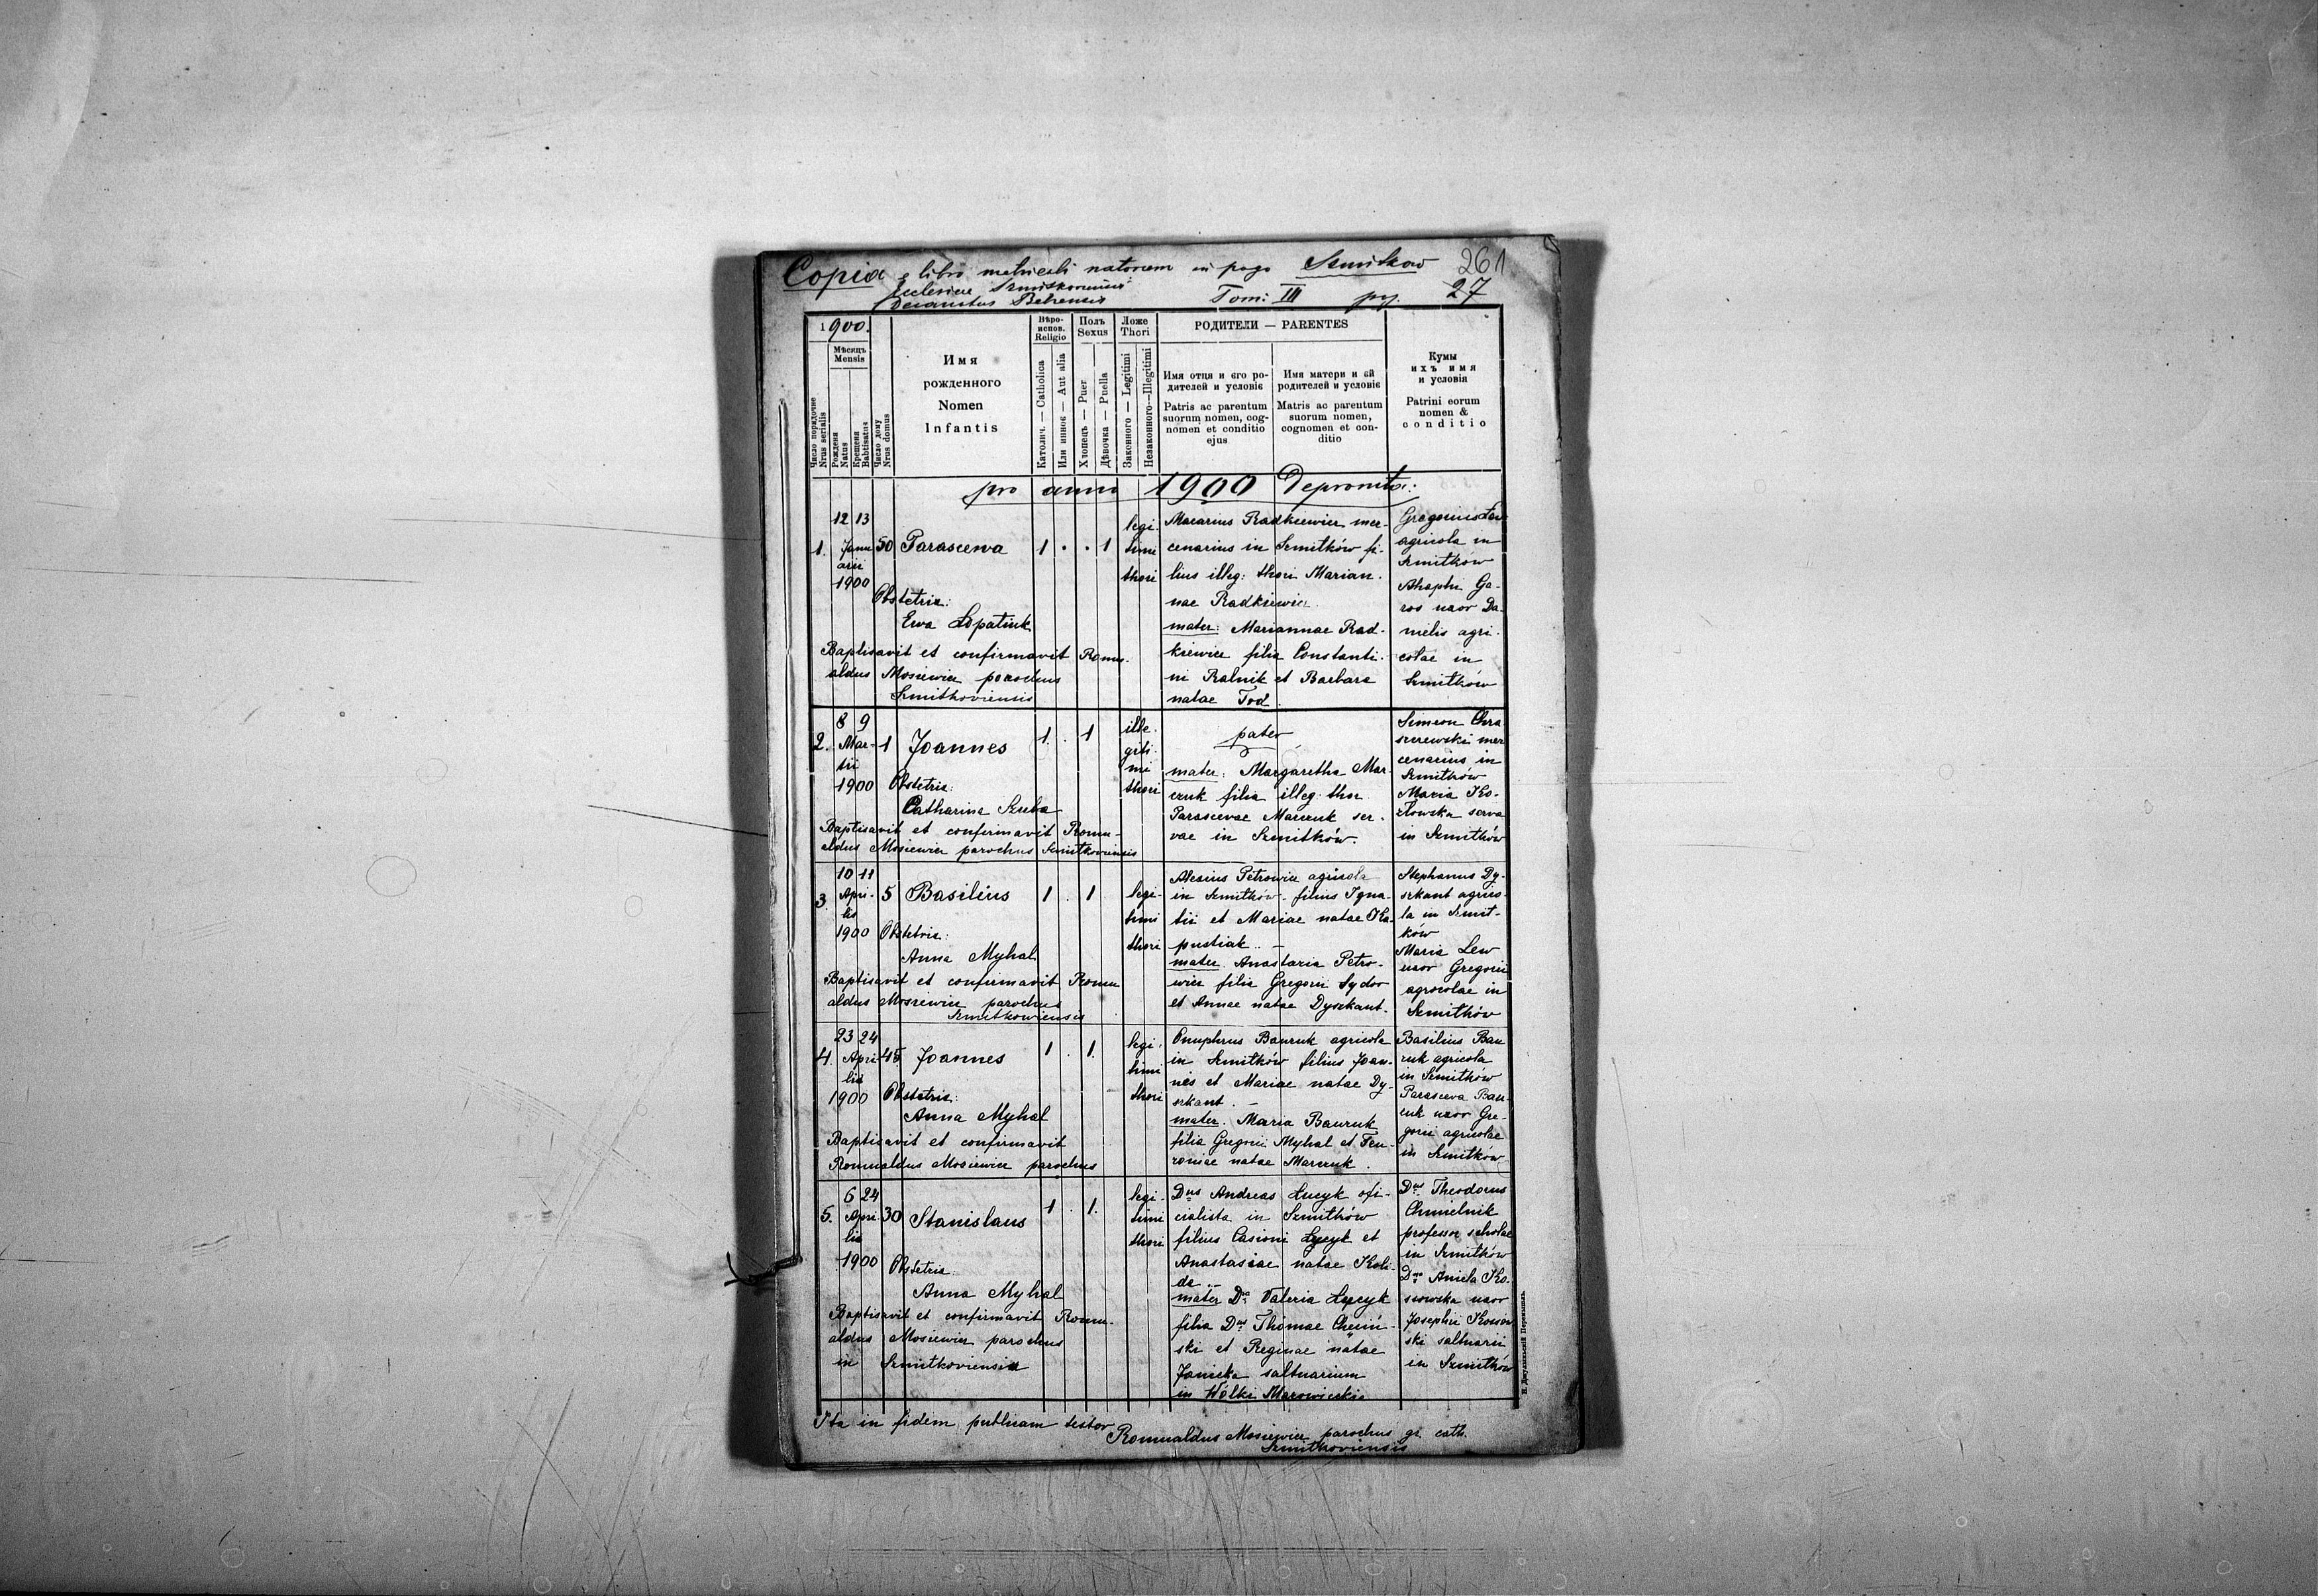 Copia e libro metricali natorum in pago Szmitkow 261
Ecclesiae Szmitkoviensis
Decanatus Belzensis Tom: III pg. 27
1900.
Мѣсяцъ
Mensis
Число порядочне
Nrus serialis
Рождення
Natus
Крещення
Babtisatus
Число дому
Nrus domus
Имя
рожденного
Nomen
Infantis
Вѣро-
испов.
Religio
Католич. — Catholica
Или инное — Aut alia
Полъ
Sexus
Хлопець — Puer
Дѣвочка — Puella
Ложе
Thori
Законного — Legitimi
Незаконного — Illegitimi
РОДИТЕЛИ — PARENTES
Имя отця и єго ро-
дителей и условіє
Patris ac parentum
suorum nomen, cog-
nomen et conditio
ejus
Имя матери и єй
родителей и условіє
Matris ac parentum
suorum nomen,
cognomen et con-
ditio
Кумы
ихъ имя
и условія
Patrini eorum
nomen &
conditio
pro anno 1900
1.
12 13
Janu
arii
1900
50
Parascewa
1 . . 1
legi-
timi
thori
Obstetrix:
Ewa Łopatiuk
Baptisavit et confirmavit Romu-
aldus Mosiewicz parochus
Szmitkoviensis
Macarius Radkiewicz mer-
cenarius in Szmitków fi-
lius illeg: thori Marian-
nae Radkiewicz.
mater: Mariannae Rad-
kiewicz filia Constanti-
ni Ralnik et Barbara
natae Tod.
Gregorius Lew
agricola in
Szmitków
uxor Da-
nielis agri-
colae in
Szmitków
2.
8 9
Mar-
tii
1900
1
Joannes
1 . 1
ille-
giti-
mi
thori
Obstetrix:
Catharina Szuba
Baptisavit et confirmavit Romu-
aldus Mosiewicz parochus Szmitkoviensis
pater
mater: Margaretha Mar-
czuk filia illeg. thor
Parascevae Marczuk ser-
vae in Szmitków.
Simeon Chra-
szczewski mer
cenarius in
Szmitków
Maria Ko-
złowska serva
in Szmitków
3.
10 11
Apri-
lis
1900
5
Basilius
1 . 1
legi-
timi
thori
Obstetrix:
Anna Myhal
Baptisavit et confirmavit Romu
aldus Mosiewicz parochus
Szmitkowiensis
Alexius Petrowicz agricola
in Szmitków. filius Igna-
tii et Mariae natae Ka-
pustiak. —
mater. Anastazia Petro-
wicz filia Gregorii Sydor
et Annae natae Dyszkant.
Stephanus Dy-
szkant agrico-
la in Szmit-
ków
Maria Lew
uxor Gregorii
agricolae in
Szmitków
4.
23 24
Apri
lis
1900
45
Joannes
1 . 1.
legi-
timi
thori
Obstetrix:
Anna Myhal
Baptisavit et confirmavit
Romualdus Mosiewicz parochus
Onuphrius Bauruk agricola
in Szmitków filius Joan-
nes et Mariae natae Dy-
szkant. —
mater. Maria Bauruk
filia Gregorii Myhal et Feu-
roniae natae Marczuk.
Basilius Bau
ruk agricola
in Szmitków
Parasceva Bau-
ruk uxor Gre-
gorii agricolae
in Szmitków
5.
6 24
Apri
lis
1900
30
Stanislaus
1 . 1.
legi-
timi
thori
Obstetrix:
Anna Myhal
Baptisavit et confirmavit Romu-
aldus Mosiewicz parochus
in Szmitkoviensis
Dnus Andreas Łucyk ofi-
cialista in Szmitków
filius Casioni Łycyk et
Anastasiae natae Koli-
da —
mater Dna Valeria Łycyk
filia Dni Thomae
ski et Reginae natae
Janicka saltuarium
in Wólki Mazowieckie
Dnus Theodorus
Chmielnik
professor scholae
in Szmitków
Dna Aniela Ko-
ssowska uxor
Josephi Kossow
ski saltuarii
in Szmitków
Ita in fidem publicam testor
Romualdus Mosiewicz parochus gr. cath.
Szmitkoviensis